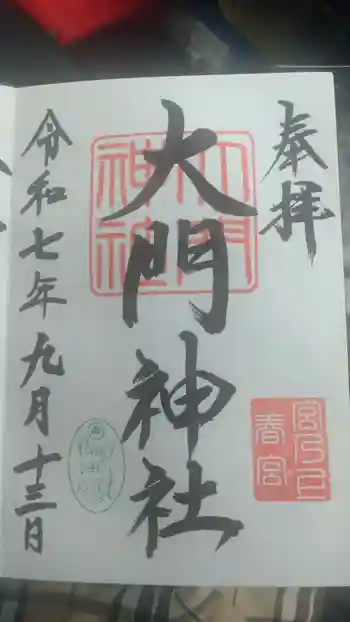 奉拝
大門神社
大門
神社
宮乃上
春宮
令和七年九月十三日